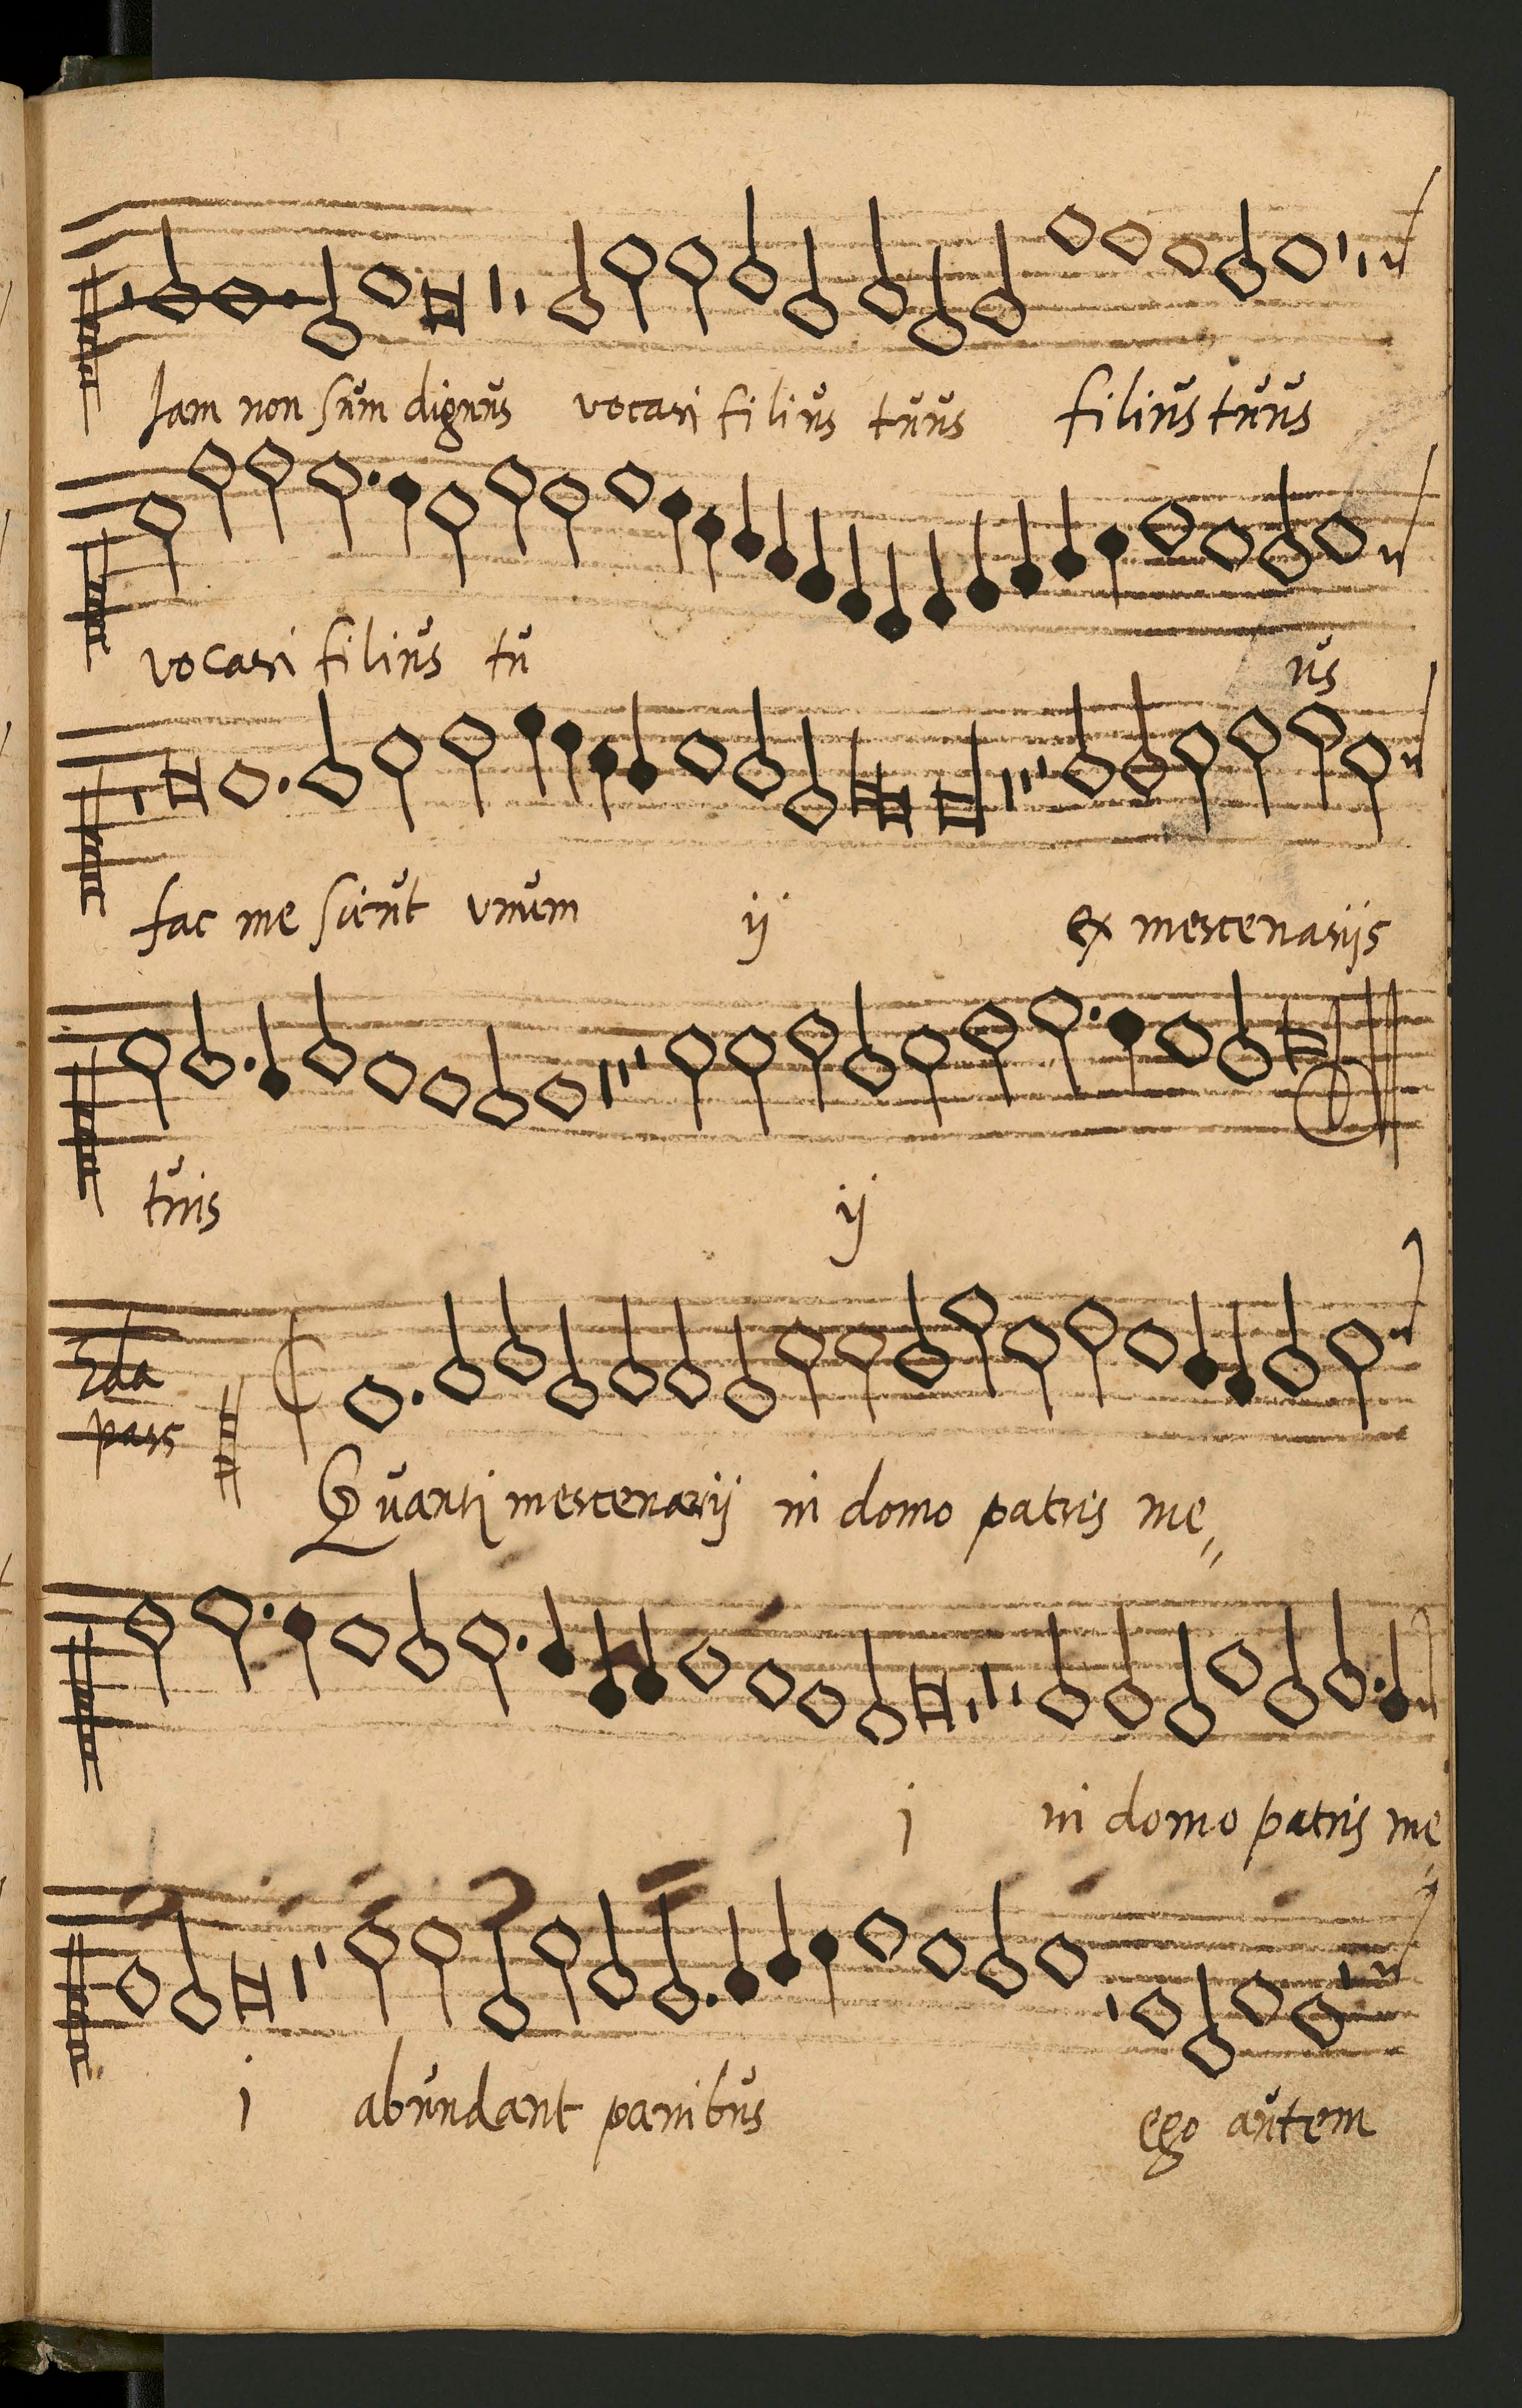 Jam non sum dignus vocari filius tuus filius tuus
vocari filius tu us
fac me sicut unum ij ex mercenarijs
tuis ij
2da
pars
Quanti mercenarij in domo patris me
i in domo patris me
i abundant panibus ego autem